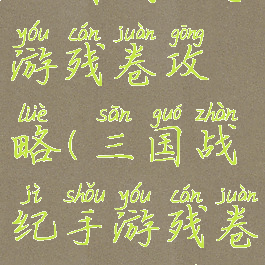 yóu cán juàn gōng
游残卷攻
lüè sān guó zhàn
略(三国战
jì shǒu yóu cán juàn
纪手游残卷